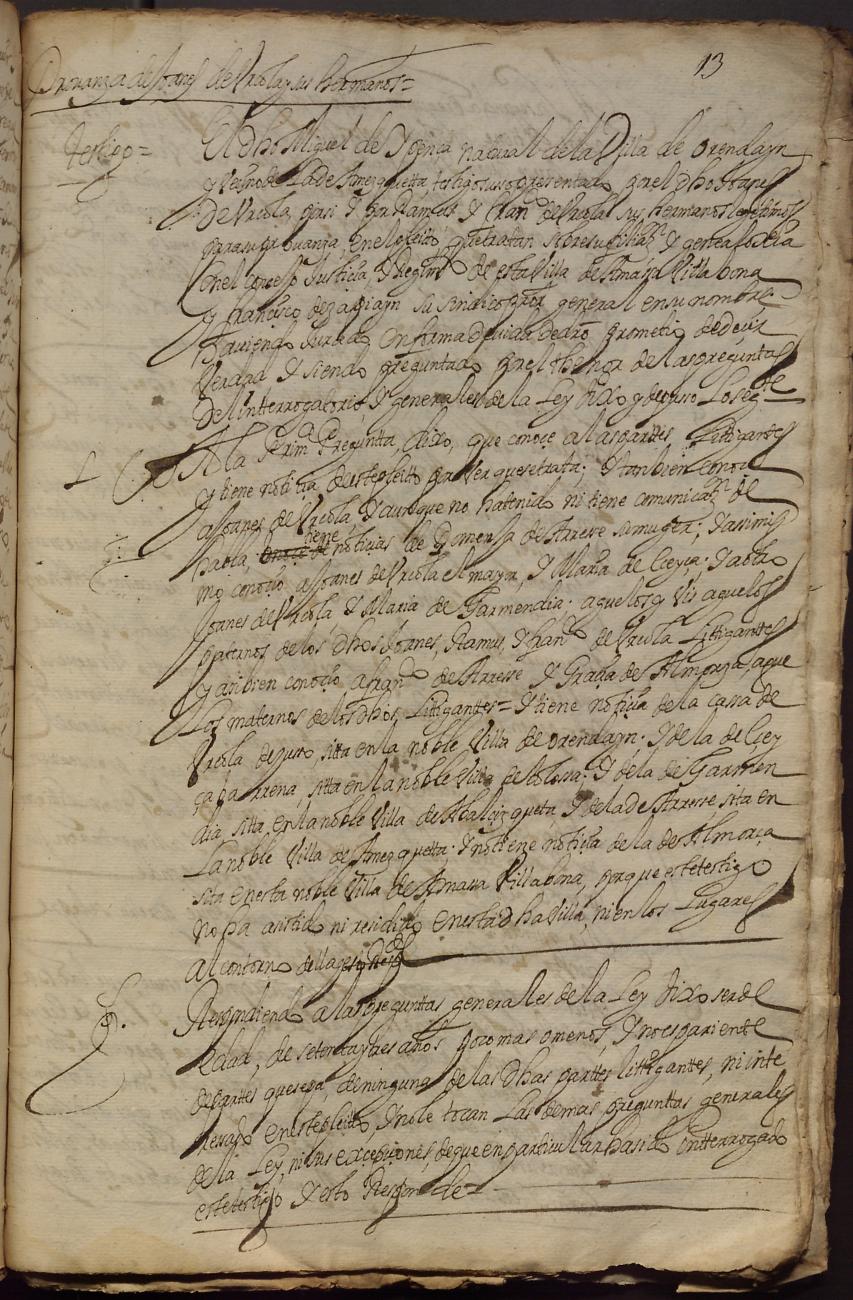 13
Provanza de Joanes de Urcola y sus hermanos =
testigo =
El dho Miguel de Ygenea natural de la Villa de Orendayn
y vezino de la de Amezquetta, testigo suso presentado por el dho Joanes
de Urcola, por si y por Ramus y Franco de Urcola sus hermanos legitimos
para su provanza, en el pleito que tratan sobre su filiazn y genealoxia
con el conzejo Justicia, y Regimto de esta Villa de Amasa Villabona
y Francisco de zavayn su sindico procor general en su nombre =
haviendo Jurado en forma devida de dro prometio de decir
verdad y siendo preguntado por el thenor de las preguntas
del intterrogatorio y generales de la Ley dixo y depuso lo segte
1 A la Prima Pregunta, dixo, que conoce a las parttes Littigantes
y tiene noticia de este pleito por ver que se trata; y tanbien conoce
a Joanes de Urcola, y aunque no ha tenido ni tiene comunicazn de
habla, tiene noticias de Domensa de Arrese su muger; y asimis
mo conocio a Joanes de Urcola el mayor, y Maria de Ceyca; y a otro
Joanes de Urcola y Maria de Garmendia: aguelos y vis aguelos
paternos de los dhos Joanes, Ramus, y Franco de Urcola Littigantes
y anbien conocio a Franco de Arrese y Graña de Almorza, ague
los maternos de los dhos Littigantes = y tiene noticia de la cassa de
Urcola de yuso, sitta en la noble Villa de Orendayn: y de la de Cey
ca barrena, sitta en la noble Villa de tolossa: y de la de Garmen
dia, sitta, en la noble Villa de Abalcizqueta y de la de Arrese sita en
la noble Villa de Amezquetta: y no tiene noticia de la de Almorça
sita en esta noble Villa de Amassa Villabona, porque este testigo
no ha asistido ni residido en esta dha Villa, ni en los Lugares
al contorno de lla
Respondiendo a las preguntas generales de la Ley dixo ser de
hedad, de setenta y tres años poco mas o menos, y no es pariente
de parttes que sepa, de ninguna de las dhas parttes littigantes, ni inte
resado en este pleitto, y no le tocan Las demas preguntas generales
de la Ley, ni sus excepciones, de que en particular ha sido intterrogado
este testigo y esto Responde =